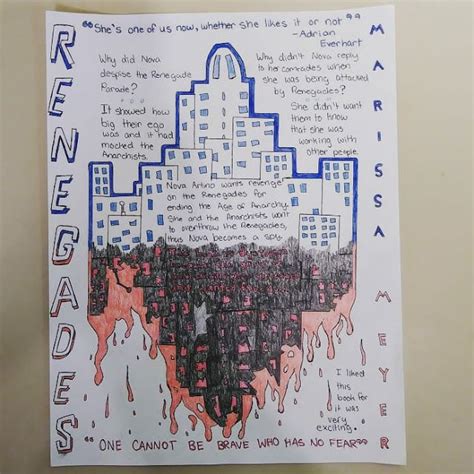 "She's one of us now, whether she likes it or not"
-Adrian
Everhart
RENEGADES
MARISSA MEYER
Why did Nova
despise the Renegade
Parade?
It showed how
big their ego
was and it had
mocked the
Anarchists.
Why didn't Nova reply
to her comrades when
she was being attacked
by Renegades?
She didn't want
them to know
that she was
working with
other people.
Nova Artino wants revenge
on the Renegades for
ending the Age of Anarchy.
She and the Anarchists want
to overthrow the Renegades,
thus Nova becomes a spy.
I liked
this
book for
it was
very
exciting.
"ONE CANNOT BE BRAVE WHO HAS NO FEAR"